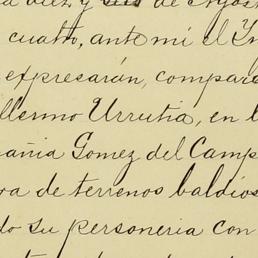 a diez y seis de Agos
cuatro, ante mí el In
expresarán, compare
llermo Urrutia, en l
añia Gomez del Camp
ra de terrenos baldíos
do su personeria con